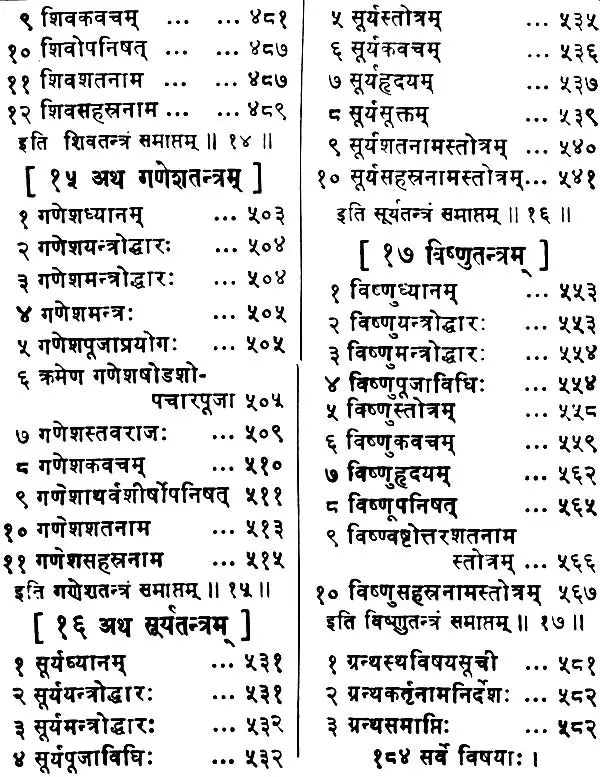 ९ शिवकवचम् ... ... ४८१
१० शिवोपनिषत् ... ... ४८७
११ शिवशतनाम ... ... ४८७
१२ शिवसहस्रनाम ... ... ४८९
इति शिवतन्त्रं समाप्तम् ॥ १४ ॥
[ १५ अथ गणेशतन्त्रम् ]
१ गणेशध्यानम् ... ५०३
२ गणेशयन्त्रोद्धारः ... ५०४
३ गणेशमन्त्रोद्धारः ... ५०४
४ गणेशमन्त्रः ... ५०५
५ गणेशपूजाप्रयोगः ... ५०५
६ क्रमेण गणेशषोडशो-
पचारपूजा ५०५
७ गणेशस्तवराजः ... ५०९
८ गणेशकवचम् ... ५१०
९ गणेशाथर्वशीर्षोपनिषत् ५११
१० गणेशशतनाम ... ५१३
११ गणेशसहस्रनाम ... ५१५
इति गणेशतन्त्रं समाप्तम् ॥ १५ ॥
[ १६ अथ सूर्यतन्त्रम् ]
१ सूर्यध्यानम् ... ५३१
२ सूर्ययन्त्रोद्धारः ... ५३१
३ सूर्यमन्त्रोद्धारः ... ५३२
४ सूर्यपूजाविधिः ... ५३२
५ सूर्यस्तोत्रम् ... ५३५
६ सूर्यकवचम् ... ५३६
७ सूर्यहृदयम् ... ५३७
८ सूर्यसूक्तम् ... ५३९
९ सूर्यशतनामस्तोत्रम् ... ५४०
१० सूर्यसहस्रनामस्तोत्रम्... ५४१
इति सूर्यतन्त्रं समाप्तम् ॥ १६ ॥
[ १७ विष्णुतन्त्रम् ]
१ विष्णुध्यानम् ... ५५३
२ विष्णुयन्त्रोद्धारः ... ५५३
३ विष्णुमन्त्रोद्धारः ... ५५४
४ विष्णुपूजाविधिः ... ५५४
५ विष्णुस्तोत्रम् ... ५५८
६ विष्णुकवचम् ... ५५९
७ विष्णुहृदयम् ... ५६२
८ विष्णूपनिषत् ... ५६५
९ विष्ण्वष्टोत्तरशतनाम
स्तोत्रम् ... ५६६
१० विष्णुसहस्रनामस्तोत्रम् ५६७
इति विष्णुतन्त्रं समाप्तम् ॥ १७ ॥
१ ग्रन्थस्थविषयसूची ... ५८१
२ ग्रन्थकर्तृनामनिर्देशः ... ५८२
३ ग्रन्थसमाप्तिः ... ५८२
१८४ सर्वे विषयाः ।